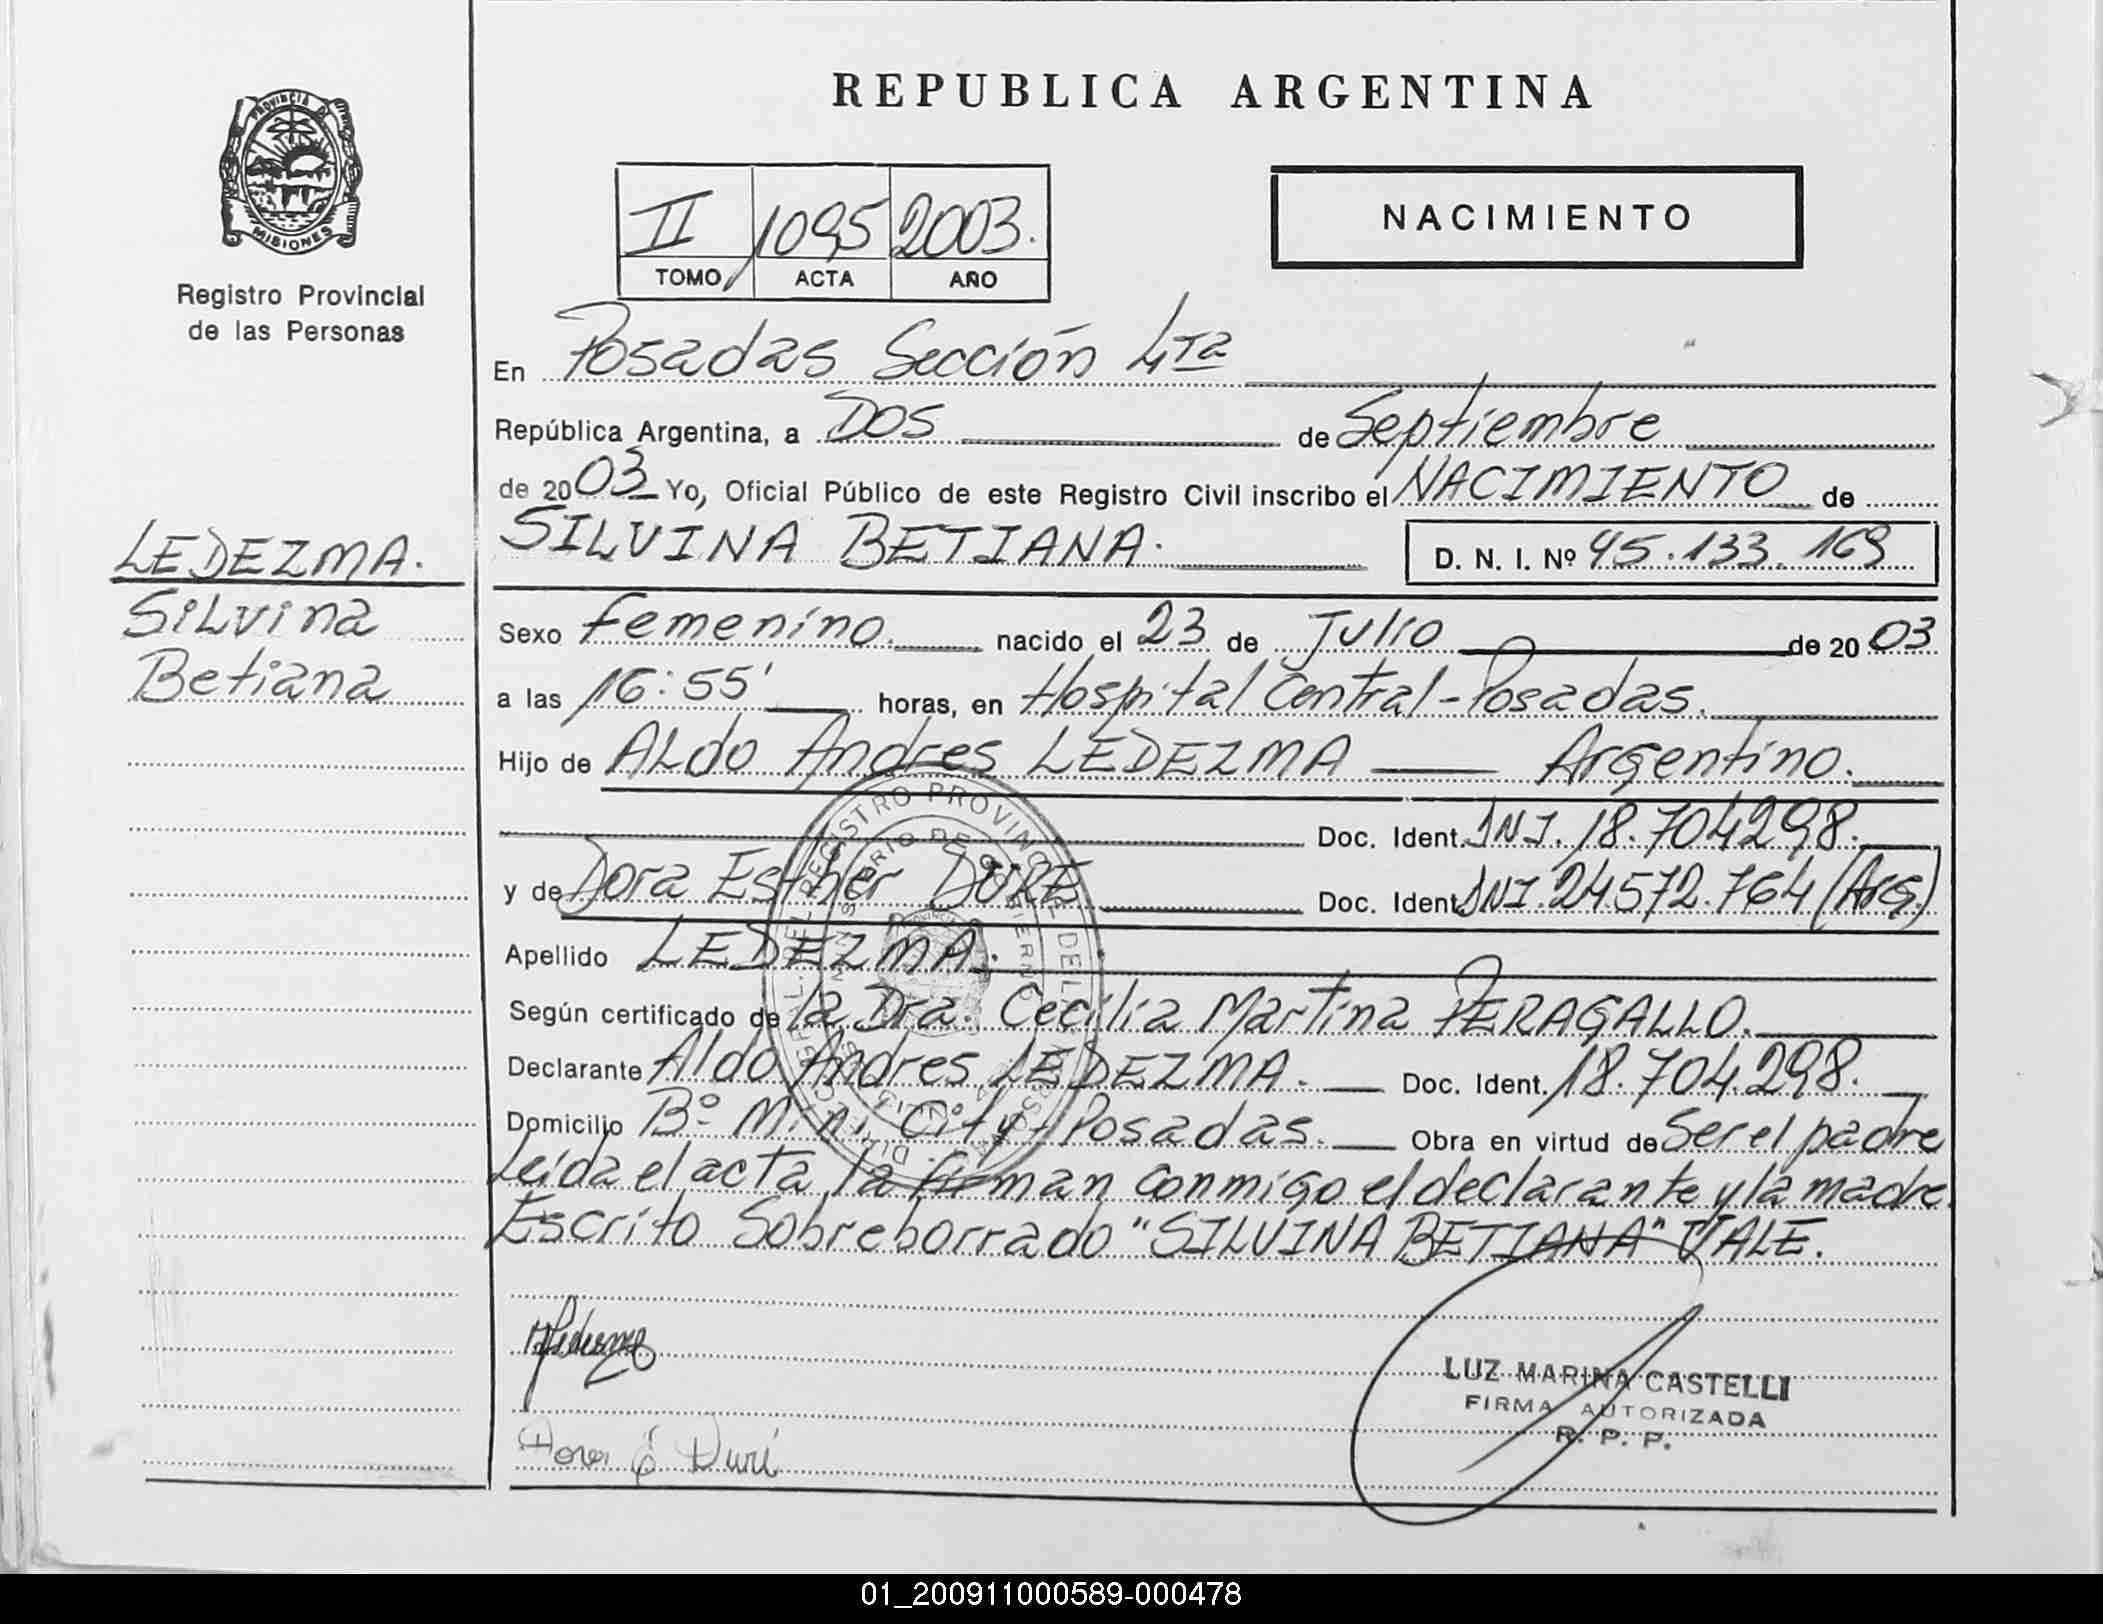 REPUBLICA ARGENTINA
PROVINCIA DE
MISIONES
Registro Provincial
de las Personas
II 1095 2003.
TOMO ACTA AÑO
NACIMIENTO
En Posadas Sección 4ta
República Argentina, a Dos de Septiembre
de 2003 Yo, Oficial Público de este Registro Civil inscribo el NACIMIENTO de
SILVINA BETIANA. D. N. I. Nº 45.133.169
LEDEZMA.
Silvina
Betiana
Sexo femenino. nacido el 23 de Julio de 2003
a las 16:55' horas, en Hospital Central - Posadas.
Hijo de Aldo Andres LEDEZMA Argentino.
Doc. Ident. DNI. 18.704298.
y de Dora Esther DURE Doc. Ident. DNI. 24.572.764 (Arg.)
Apellido LEDEZMA.
Según certificado de la Dra. Cecilia Martina PERAGALLO.
Declarante Aldo Andres LEDEZMA. Doc. Ident. 18.704.298.
Domicilio Bº Mini City - Posadas. Obra en virtud de Ser el padre
Leida el acta, la firman conmigo el declarante y la madre.
Escrito Sobreborrado "SILVINA BETIANA" VALE.
Dora E Duré
LUZ MARINA CASTELLI
FIRMA AUTORIZADA
R. P. P.
01_200911000589-000478